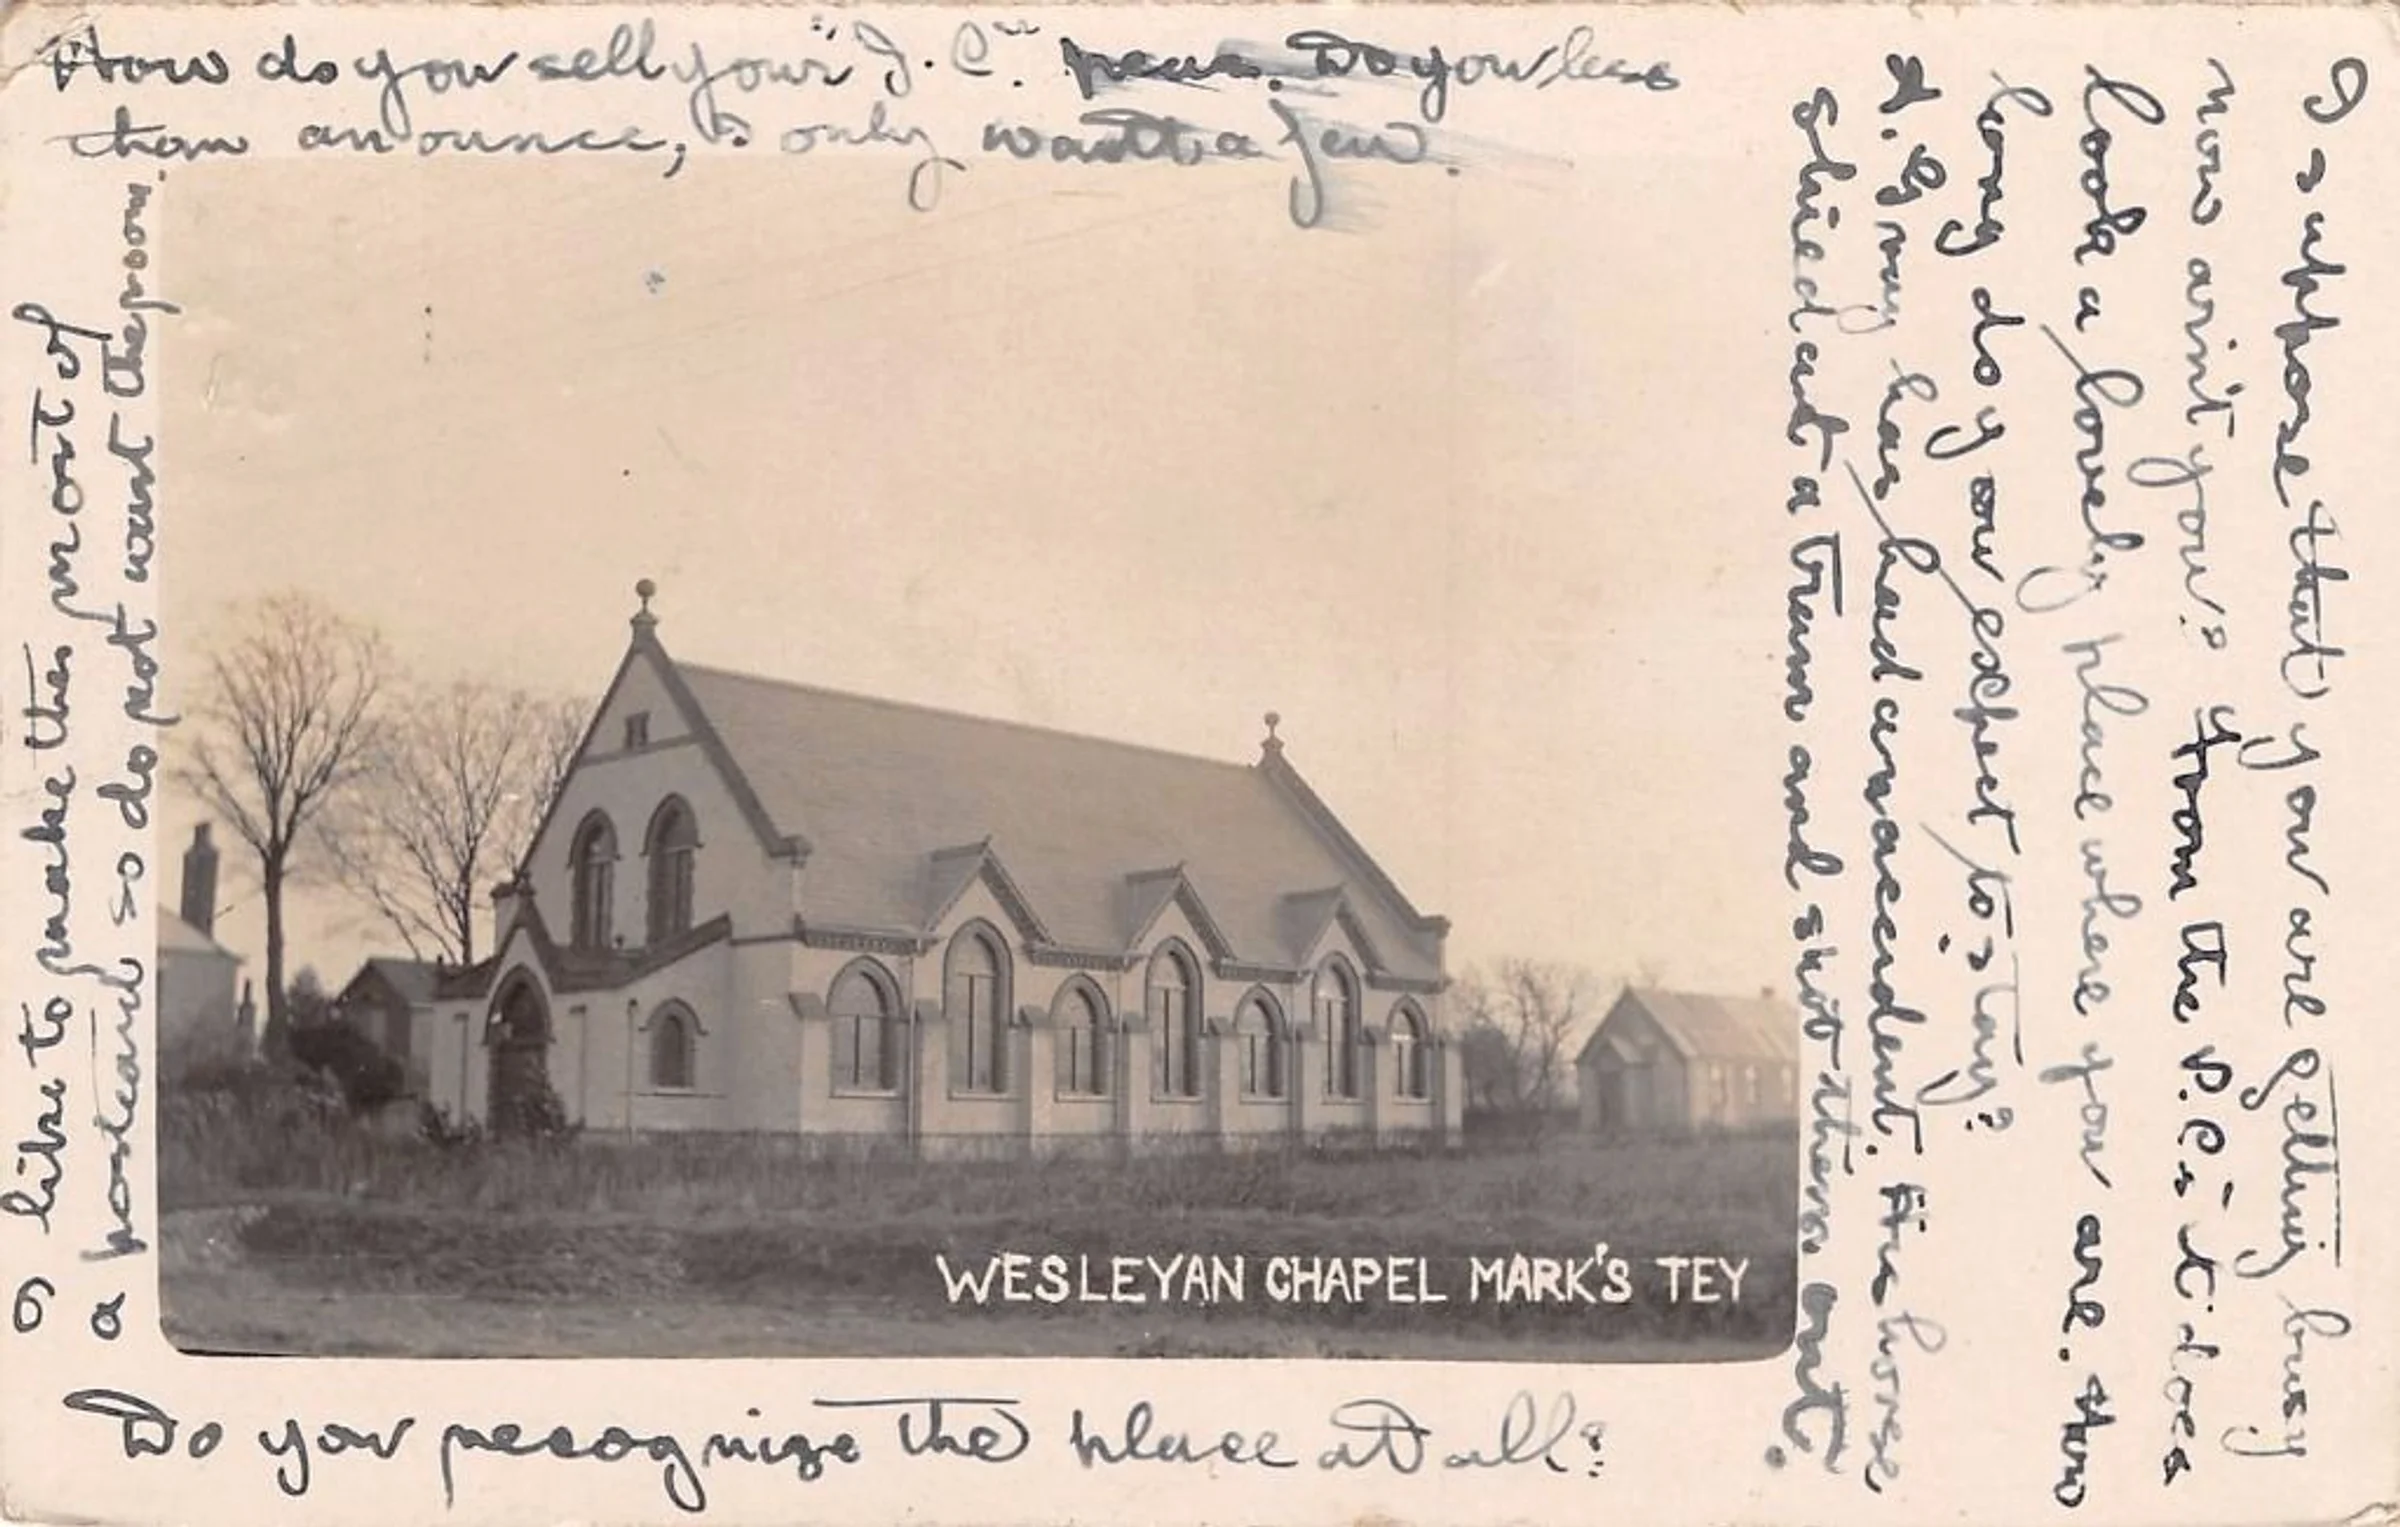 How do you sell your "J.C." peas. Do you less
than an ounce, I only want a few.
I like to make the most of
a postcard so do not want the room.
WESLEYAN CHAPEL MARK'S TEY
Do you recognize the place at all?
I suppose that you are getting busy
now arint you? From the P.C's it does
look a lovely place where you are. How
long do you expect to stay?
A. G may has had an accident. His horse
shied at a tram and shot them out.